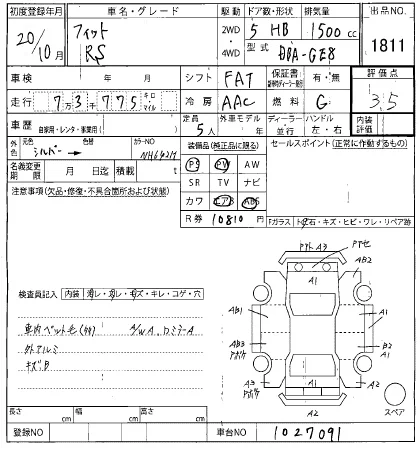 初度登録年月 車名・グレード 駆動 ドア数・形状 排気量 出品NO.
20/10月 フィット RS 2WD・4WD 5 HB 1500cc 1811
型式 DBA-GE8
車検 年 月 シフト FAT 保証書 有・無 評価点
走行 7万3千775 キロ マイル 冷房 AAC 燃料 G 3.5
車歴 自家用・レンタ・事業用( ) 定員 5人 外車モデル 年 ディーラー・並行 ハンドル 左・右 内装評価
外色 元色 シルバー → 色替 カラーNO NH642M 装備品(純正品に限る) セールスポイント(正常に作動するもの)
名義変更期限 月 日迄 積載 t PS PW AW
注意事項(欠品・修復・不具合箇所および状態) SR TV ナビ
カワ エアB ABS
R券 10810円 Fガラス トビ石・キズ・ヒビ・ワレ・リペア跡
A3
A2 AB2
A1
検査員記入 内装 汚レ・スレ・キズ・キレ・コゲ・穴
AB1 A1
車内ペット毛 A/W A ロミラーA
外アルミ
キズB
AB3 B2 A1
A3 A1
A1
A2 A2 スペア
長さ cm 幅 cm 高さ cm
登録NO 車台NO 1027091